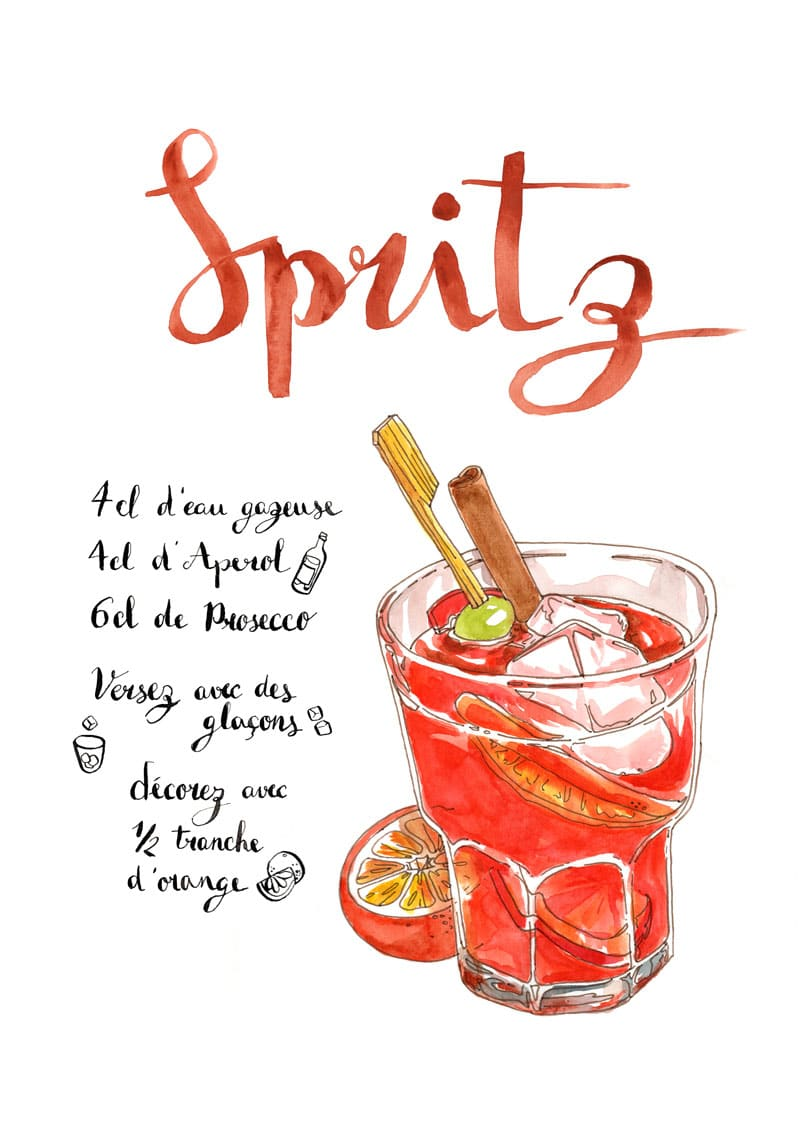 Spritz
4cl d'eau gazeuse
4cl d'Aperol
6cl de Prosecco
Versez avec des
glaçons
décorez avec
1/2 tranche
d'orange